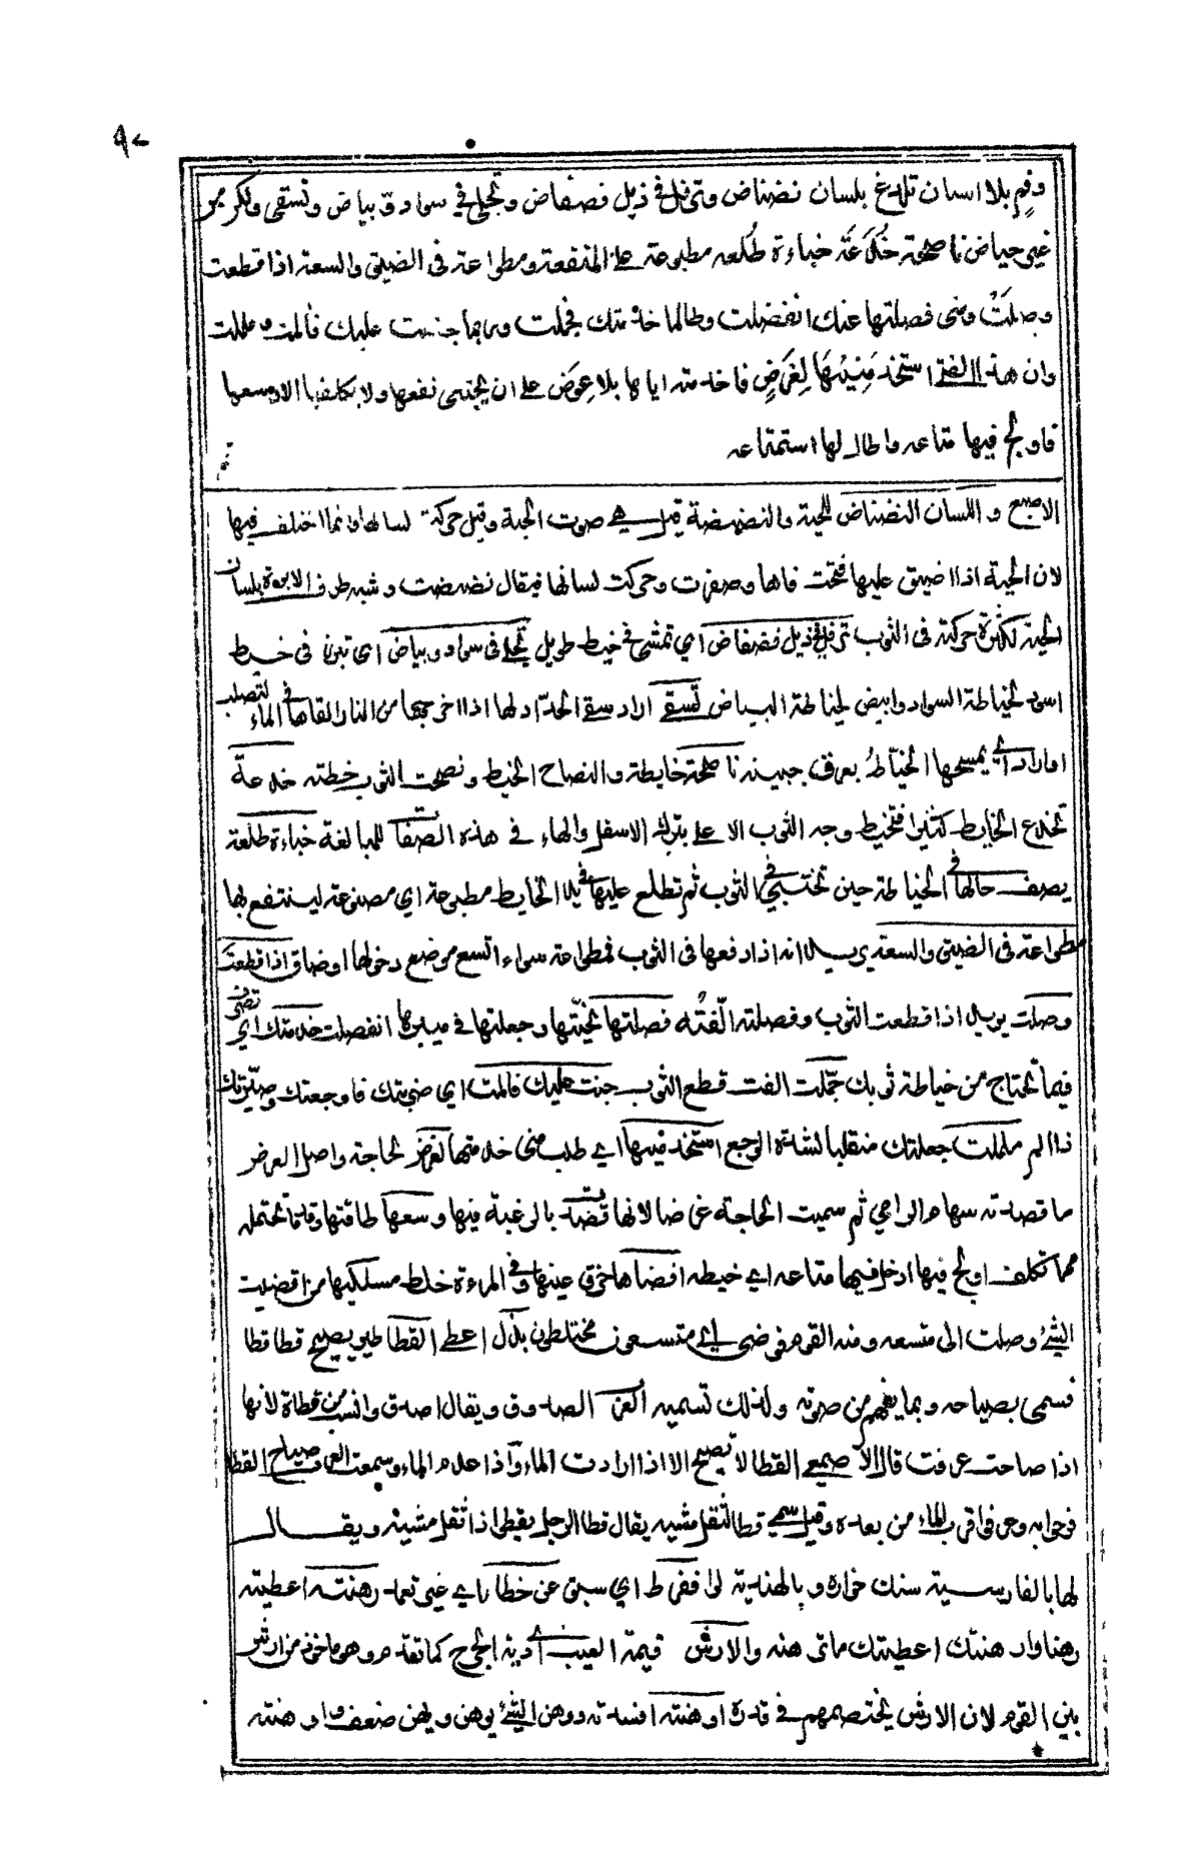 ٩٠
وفم بلا اسنان تلدغ بلسان نضناض وترفل في ذيل فضفاض وتجلى في سواد وبياض وتسقى ولكن من
غير حياض ناصحة خُدَعَة خباءة طُلعه مطبوعة على المنفعة ومطواعة في الضيق والسعة اذا قطعت
وصلَتْ ومتى فصلتها عنك انفصلت وطالما خدمتك فجملت وربما جنت عليك فآلمت وململت
وان هذا الفتى استخدمَنِيْهَا لِغَرَضٍ فاخدمته اياها بلا عِوَض على ان يجتنى نفعها ولا يكلفها الا وسعها
فاولج فيها متاعه واطال لها استمتاعه
الاصبع واللسان النضناض للحية والنضنضة قيل هي صوت الحية وقيل حركة لسانها وانما اختلف فيها
لان الحية اذا ضيق عليها فتحت فاها وصفرت وحركت لسانها فيقال نضنضت وشبه طرف الابرة بلسان
الحية لكثرة حركته في الثوب ترفل في ذيل فضفاض اي تمشى في خيط طويل تجلى في سواد وبياض اي تبرز في خيط
اسود لخياطة السواد وابيض لخياطة البياض تسقى اراد سقي الحدّاد لها اذا اخرجها من النار القاها في الماء لتصلب
او اراد ان يمسحها الخيّاطُ بعرق جبينه ناصحة خايطة والنصاح الخيط ونصحت الثوب خطته خدعة
تخدع الخايط كثيرا فتخيط وجه الثوب الاعلى بترك الاسفل والهاء في هذه الصفات للمبالغة خباءة طلعة
يصف حالها في الخياطة حين تختبي في الثوب ثم تطلع عليها في يد الخايط مطبوعة اي مصنوعة لينتفع بها
مطواعة في الضيق والسعة يريد انه اذا دفعها في الثوب فمطواعة سواء اتسع موضع دخولها او ضاق اذا قطعت
وصلت يريد اذا قطعت الثوب وفصلته الّفتْه فصلتها نحيتها وجعلتها في ميبرها انفصلت خدمتك اي
فيما تحتاج من خياطة ثوبك جمّلت الفت قطع الثوب جنت عليك فآلمت اي ضربتك فاوجعتك وصيّرتك
ذا الم ململت جعلتك متقلبا لشدة الوجع استخدمنيها اي طلب مني خدمتها لغرض لحاجة واصل الغرض
ما قصدته سهام الرامي ثم سميت الحاجة غرضا لانها قصدت بالرغبة فيها وسعها طاقتها وقدر ما تحتمله
مما تكلف اولج فيها ادخل فيها متاعه اي خيطه افضاها خرق عينها وفي المراءة خلط مسلكيها من افضيت
الشئ وصلت الى متسعه ومنه القوم فوضى اي متسعون مختلطون بذل اعطى القطا طير يصيح قطا قطا
فسمى بصياحه وبما يفهم من صوته ولذلك تسميه العرب الصدوق ويقال اصدق وانسب من قطاة لانها
اذا صاحت عرفت قال الاصمعي القطا لا تصيح الا اذا ارادت الماء واذا عدم الماء وسمعت العرب صياح القطا
فرحوا به وعرفوا قرب الماء من بعده وقيل سمي قطا لثقل مشيه يقال قطا الرجل يقطو اذا ثقل مشيه ويقال
لها بالفارسية سنك خواره وبالهندية لوا فرط اي سبق عن خطا اي غير تعمد رهنته اعطيته
رهنا وارهنتك اعطيتك ماترهنه والارش قيمة العيب اي دية الجرح كما تقدم وهو ماخوذ من ارشت
بين القوم لان الارش يختصمهم في قدره اوهنته افسدته ووهن الشئ يوهن ويهن ضعف واوهنته